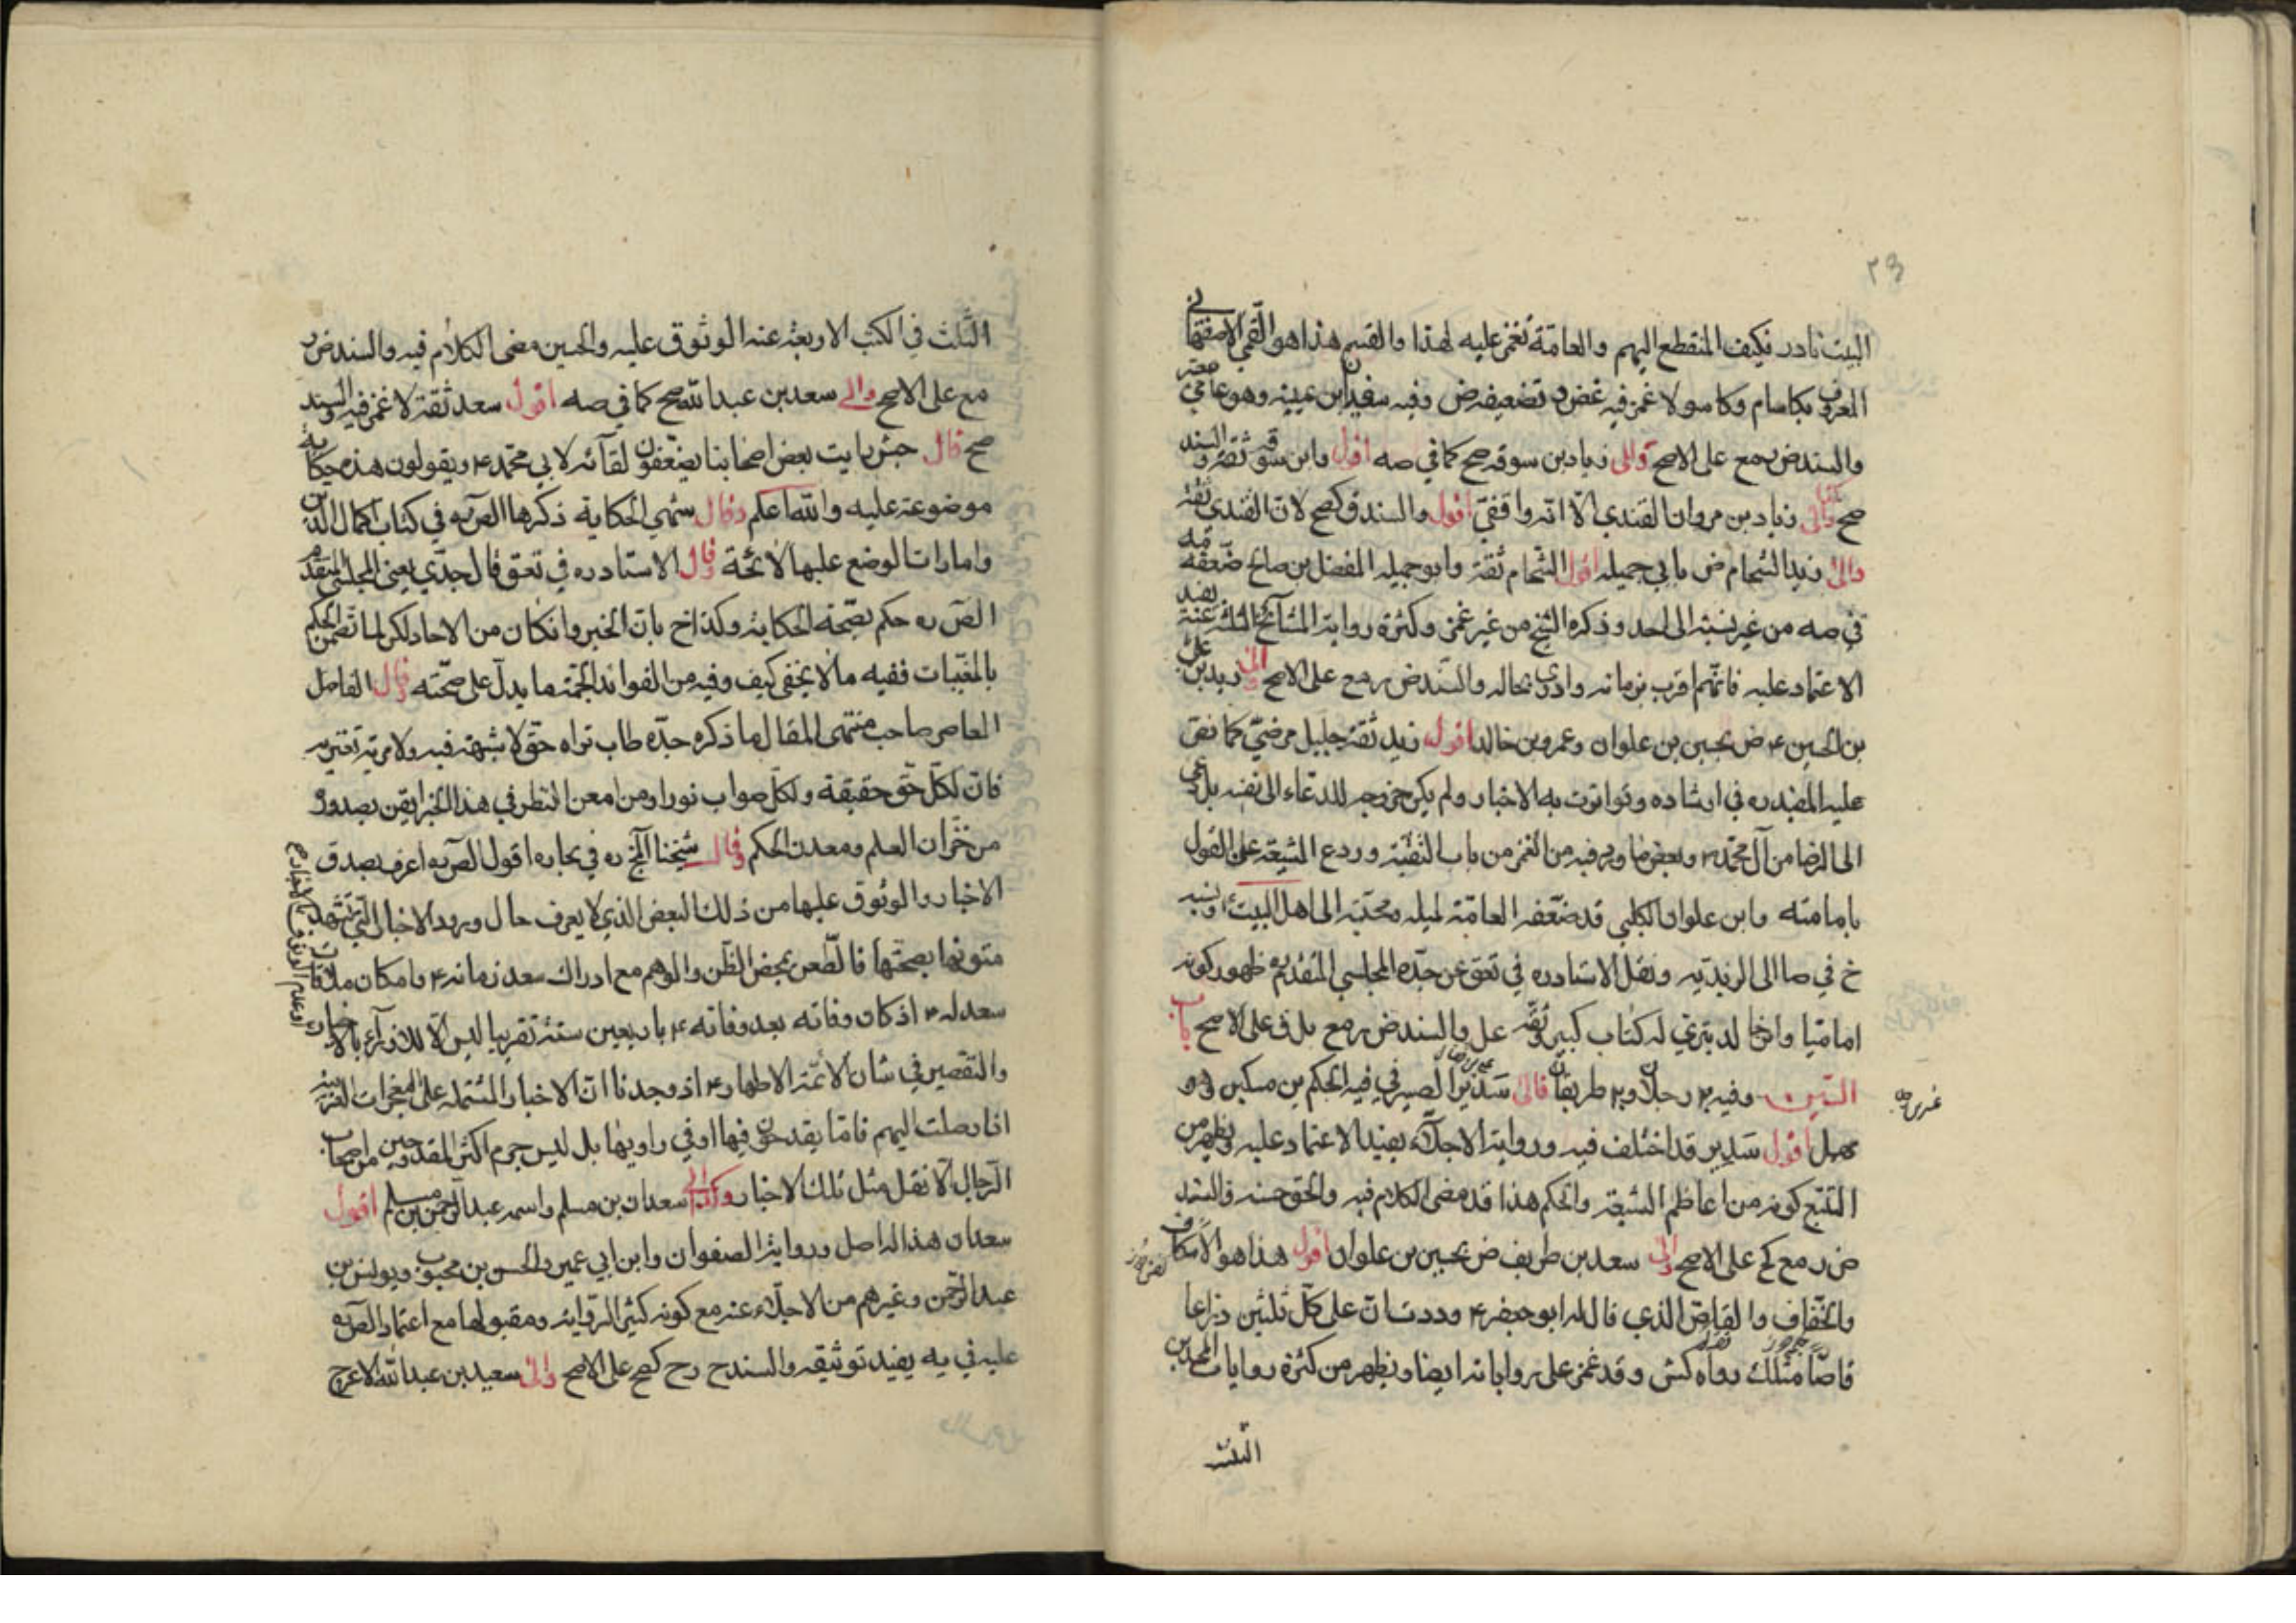 ٢٣
البيت نادر فكيف المنقطع اليهم والعامّة تغمز عليه لهذا والقسم هذا هو القمي الاصفهاني
المعروف بكاسام وكاسولا غمز فيه غض وتضعيفه ض وفيه سفين ابن عيينه وهو عامي
والسند ض رمع على الاصح والى زياد بن سوقه صح كما في صه اقول وابن سوقه ثقة والسند
صح والى زياد بن مروان القندي الّا انه واقفيّ اقول والسند ق كصح لان القندي ثقة
والى زيد الشحام ض بابي جميله اقول الشحام ثقة وابو جميله المفضل بن صالح ضعّفه
في صه من غير نسبة الى احد وذكره الشيخ من غير غمز وكثرة رواية المشايخ الثلثة عنه يفيد
الاعتماد عليه فانهم اقرب بزمانه وادرى بحاله والسند ض رمع على الاصح والى زيد بن علي
بن الحسين ع ض بحسين بن علوان وعمرو بن خالد اقول زيد ثقة جليل مرضيّ كما نص
عليه المفيد ره في ارشاده وتواترت به الاخبار ولم يكن خروجه للدعاء الى نفسه بل دعى
الى الرضا من آل محمد ص وبعض ما ورد فيه من الغمز من باب التقيّة وردع الشيعة على القول
بامامته وابن علوان الكلبي قد ضعّفه العامّة لميله ومحبّته الى اهل البيت ع ونسبه
خ في صا الى الزيديه ونقل الاستاد ره في تعق عن جدّه المجلسي المتقدم ره ظهور كونه
اماميّا وابن خالد بتري له كتاب كبير وثّقه عل والسند ض رمع بل ق على الاصح باب
السّين وفيه رجلان و طريقان قال سدير الصيرفي فيه الحكم بن مسكين وهو
مهمل اقول سدير قد اختلف فيه ورواية الاجلّاء يفيد الاعتماد عليه ويظهر من
التتبع كونه من اعاظم الشيعة والحكم هذا قد مضى الكلام فيه والحق حسنه والسند
ض رمع كح على الاصح والى سعد بن طريف ض بحسين بن علوان اقول هذا هو الاسكاف
والخفّاف والقاصّ الذي قال له ابو جعفر ع وددت انّ على كلّ ثلثين ذراعا
قاصّا مثلك رواه كش وقد غمز على رواياته ايضا ويظهر من كثرة روايات المحمدين
الثلث
الثلث في الكتب الاربعة عنه الوثوق عليه والحسين مضى الكلام فيه والسند ض ر
مع على الاصح والى سعد بن عبد الله صح كما في صه اقول سعد ثقة لا غمز فيه والسند
صح قال جش رايت بعض اصحابنا يضعّفون لقآئه لابي محمد ع ويقولون هذه حكاية
موضوعة عليه والله اعلم وقال شهى الحكاية ذكرها الص ره في كتاب اكمال الدين
وامارات الوضع عليها لائحة وقال الاستاد ره في تعق قال جدّي يعني المجلسي المتقدم
الص ره حكم بصحّة الحكاية وكذا خ بان الخبر وان كان من الاحاد لكن لما تضمّن الحكم
بالمغيّبات ففيه ما لا يخفى كيف وفيه من الفوائد الجمّة ما يدلّ على صحّته وقال الفاضل
المعاصر صاحب منتهى المقال ما ذكره جدّه طاب ثراه حق لا شبهة فيه ولا مرية تعتريه
فانّ لكلّ حق حقيقة ولكلّ صواب نورا ومن امعن النظر في هذا الخبر ايقن بصدوره
من خزّان العلم ومعدن الحكم وقال شيخنا الج ره في بحاره اقول الص ره اعرف بصدق
الاخبار والوثوق عليها من ذلك البعض الذي لا يعرف حال ورود الاخبار التي تشهد
متونها بصحتها فالطعن بمحض الظن والوهم مع ادراك سعد زمانه ع وامكان ملاقات
سعد له ع اذ كان وفاته بعد وفاته ع باربعين سنة تقريبا ليس الّا للازراء بالاخبار
وعدم الوثوق بالاخيار
والتقصير في شان الائمّة الاطهار ع اذ وجدنا انّ الاخبار المشتملة على المعجزات الغريبة
اذا وصلت اليهم فامّا يقدحون فيها او في راويها بل ليس جرم اكثر المقدوحين من اصحاب
الرجال الّا نقل مثل تلك الاخبار وكذا الى سعدان بن مسلم واسمه عبد الرحمن بن مسلم اقول
سعدان هذا له اصل ورواية الصفوان وابن ابي عمير والحسن بن محبوب ويونس بن
عبد الرّحمن وغيرهم من الاجلّاء عنه مع كونه كثير الرّواية ومقبولها مع اعتماد الص ره
عليه في يه يفيد توثيقه والسند ح رح كصح على الاصح والى سعيد بن عبد الله الاعرج